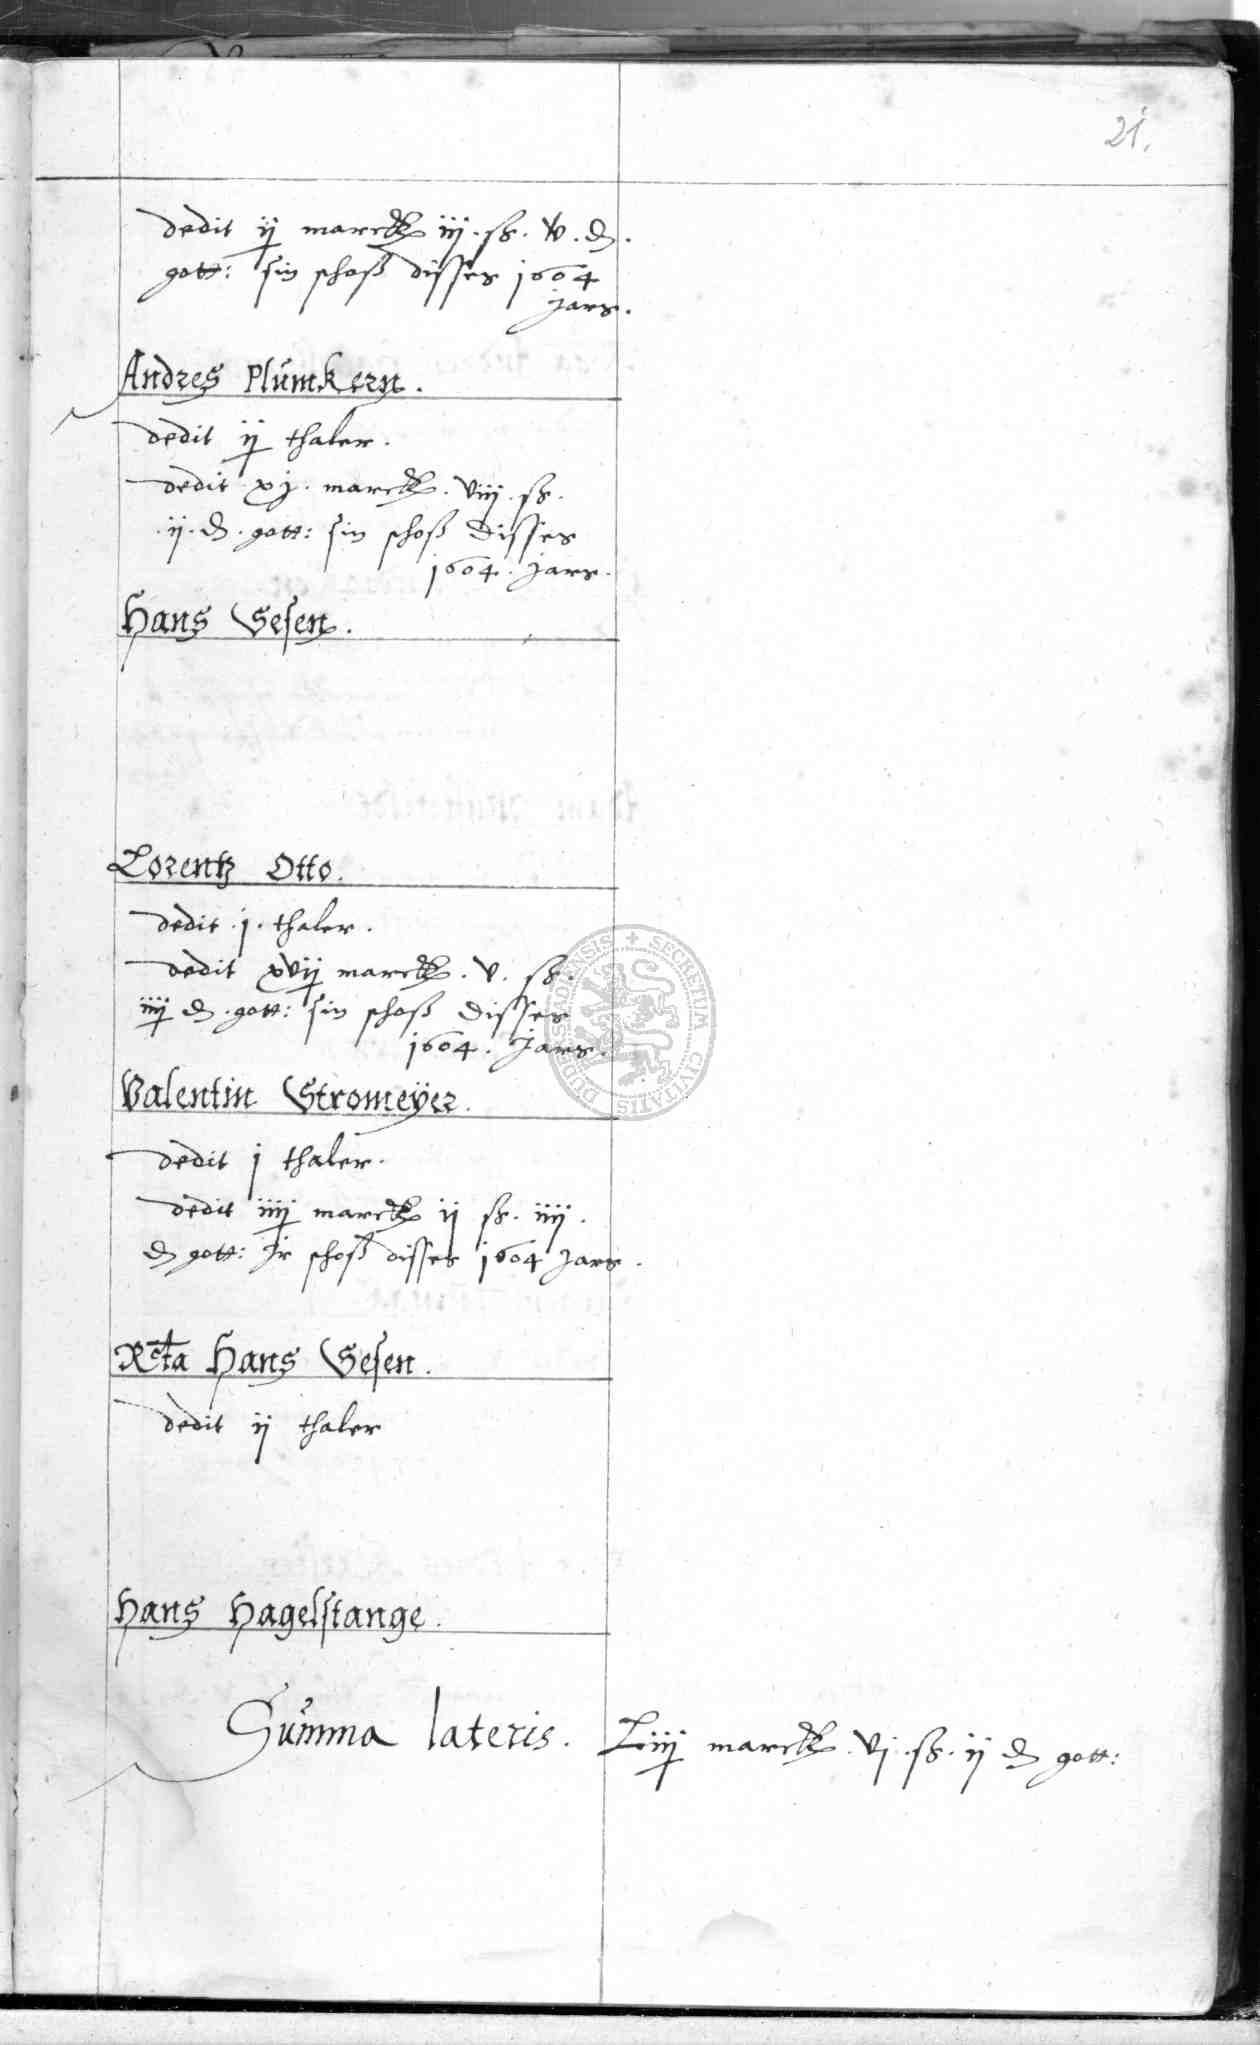 21.
dedit ij marck iij. ß. v. d.
gott: sin schoß disses 1604
jars.
Andres Plümkern.
dedit ij thaler.
dedit xj. marck. viij. ß.
ij. d. gott: sin schoß disses
1604. jars.
Hans Gesen.
Lorentz Otto.
dedit .j. thaler.
dedit xvij marck. v. ß.
iiij d. gott: sin schoß disses
1604. Jars.
Valentin Stromeÿer.
dedit j thaler.
dedit iiij marck ij ß. iiij.
d gott: Jr schoß disses 1604 Jars.
Rcta Hans Gesen.
dedit ij thaler
Hans Hagelstange.
Summa lateris. Liiij marck. vj. ß. ij d gott:
SECRETUM CIVITATIS DUDERSTADIENSIS